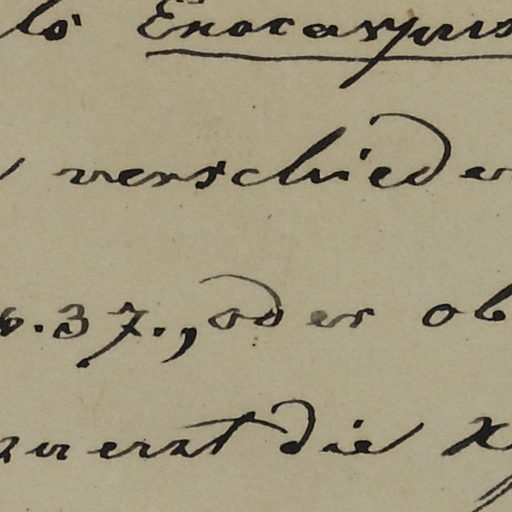 Enocarpus
verschieden
37., oder ob
zuerst die